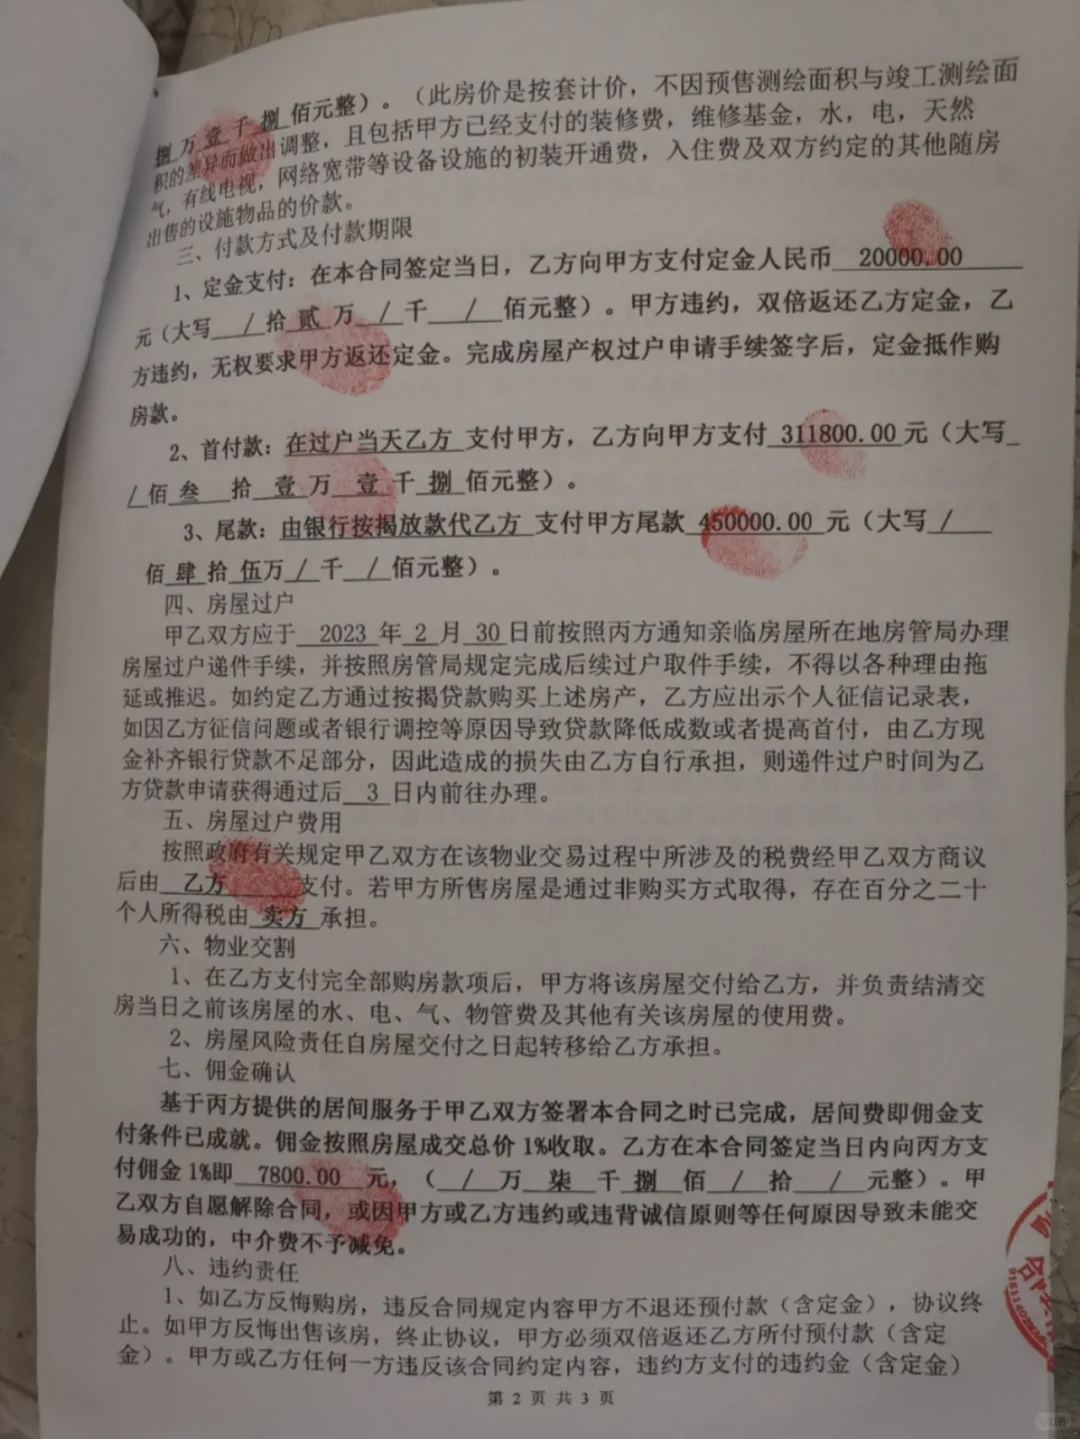 捌万壹千捌佰元整）。（此房价是按套计价，不因预售测绘面积与竣工测绘面
积的差异而做出调整，且包括甲方已经支付的装修费，维修基金，水，电，天然
气，有线电视，网络宽带等设备设施的初装开通费，入住费及双方约定的其他随房
出售的设施物品的价款。
三、付款方式及付款期限
1、定金支付：在本合同签定当日，乙方向甲方支付定金人民币 20000.00
元（大写 / 拾 贰 万 / 千 / 佰元整）。甲方违约，双倍返还乙方定金，乙
方违约，无权要求甲方返还定金。完成房屋产权过户申请手续签字后，定金抵作购
房款。
2、首付款：在过户当天乙方 支付甲方，乙方向甲方支付 311800.00 元（大写
/ 佰 叁 拾 壹 万 壹 千 捌 佰元整）。
3、尾款：由银行按揭放款代乙方 支付甲方尾款 450000.00 元（大写 /
佰 肆 拾 伍 万 / 千 / 佰元整）。
四、房屋过户
甲乙双方应于 2023 年 2 月 30 日前按照丙方通知亲临房屋所在地房管局办理
房屋过户递件手续，并按照房管局规定完成后续过户取件手续，不得以各种理由拖
延或推迟。如约定乙方通过按揭贷款购买上述房产，乙方应出示个人征信记录表，
如因乙方征信问题或者银行调控等原因导致贷款降低成数或者提高首付，由乙方现
金补齐银行贷款不足部分，因此造成的损失由乙方自行承担，则递件过户时间为乙
方贷款申请获得通过后 3 日内前往办理。
五、房屋过户费用
按照政府有关规定甲乙双方在该物业交易过程中所涉及的税费经甲乙双方商议
后由 乙方 支付。若甲方所售房屋是通过非购买方式取得，存在百分之二十
个人所得税由 卖方 承担。
六、物业交割
1、在乙方支付完全部购房款项后，甲方将该房屋交付给乙方，并负责结清交
房当日之前该房屋的水、电、气、物管费及其他有关该房屋的使用费。
2、房屋风险责任自房屋交付之日起转移给乙方承担。
七、佣金确认
基于丙方提供的居间服务于甲乙双方签署本合同之时已完成，居间费即佣金支
付条件已成就。佣金按照房屋成交总价 1%收取。乙方在本合同签定当日内向丙方支
付佣金 1%即 7800.00 元，（ / 万 柒 千 捌 佰 / 拾 / 元整）。甲
乙双方自愿解除合同，或因甲方或乙方违约或违背诚信原则等任何原因导致未能交
易成功的，中介费不予减免。
八、违约责任
1、如乙方反悔购房，违反合同规定内容甲方不退还预付款（含定金），协议终
止。如甲方反悔出售该房，终止协议，甲方必须双倍返还乙方所付预付款（含定
金）。甲方或乙方任何一方违反该合同约定内容，违约方支付的违约金（含定金）
第 2 页 共 3 页
小红书